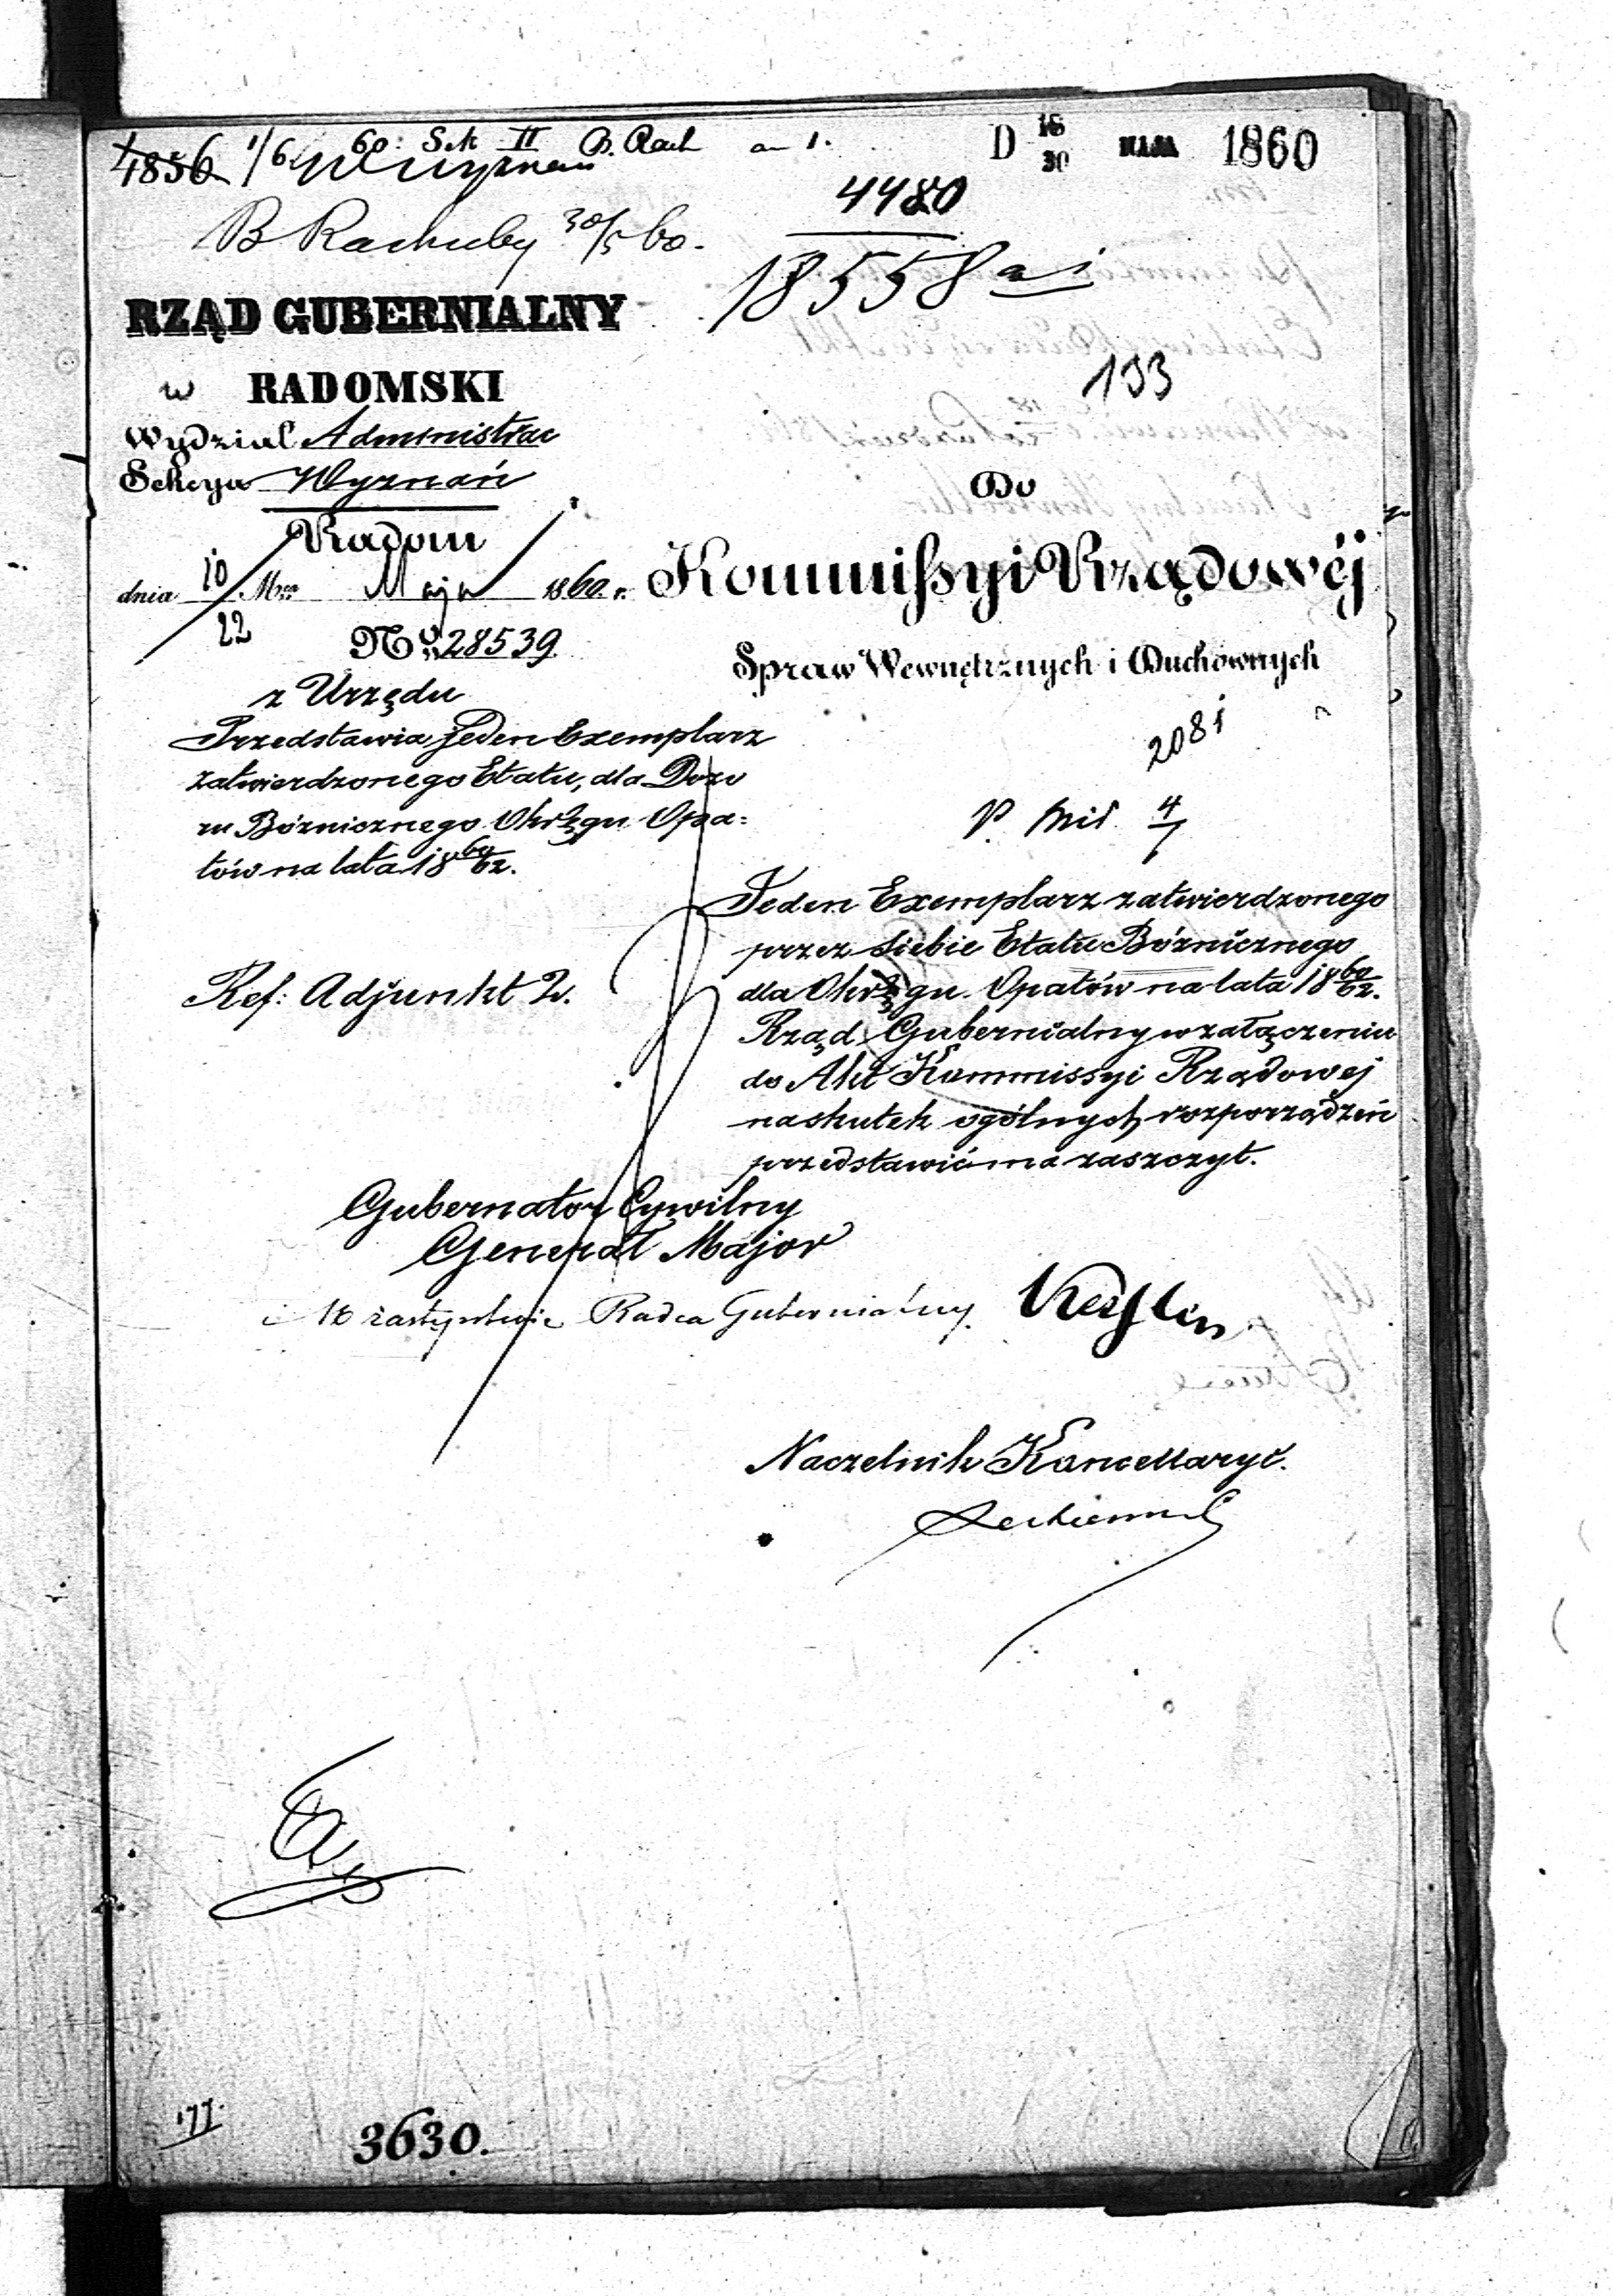 4856 1/6 60: Sek II B. Rach an 1.
Wyznań
D 18/30 MAJA 1860
4480
B Rachuby 30/5 60.
18558 a i
RZĄD GUBERNIALNY
w RADOMSKI
193
Wydział Administrac
Sekcya Wyznań
Radom
dnia 10/22 Mca Maja 1860 r.
No 28539
Do
Kommissyi Rządowéj
Spraw Wewnętrznych i Duchownych
z Urzędu
Przedstawia jeden Exemplarz
zatwierdzonego Etatu, dla Dozo
ru Bóżnicznego Okręgu Opa=
tów na lata 1860/62.
2081
4/7
Ref: Adjunkt 2.
Jeden Exemplarz zatwierdzonego
przez siebie Etatu Bóżnicznego
dla Okręgu Opatów na lata 1860/62.
Rząd Gubernialny w załączeniu
do Akt Kommissyi Rządowej
na skutek ogólnych rozporządzeń
przedstawić ma zaszczyt.
Gubernator Cywilny
Generał Major
w zastępstwie Radca Gubernialny
Naczelnik Kancellaryi.
177.
3630.